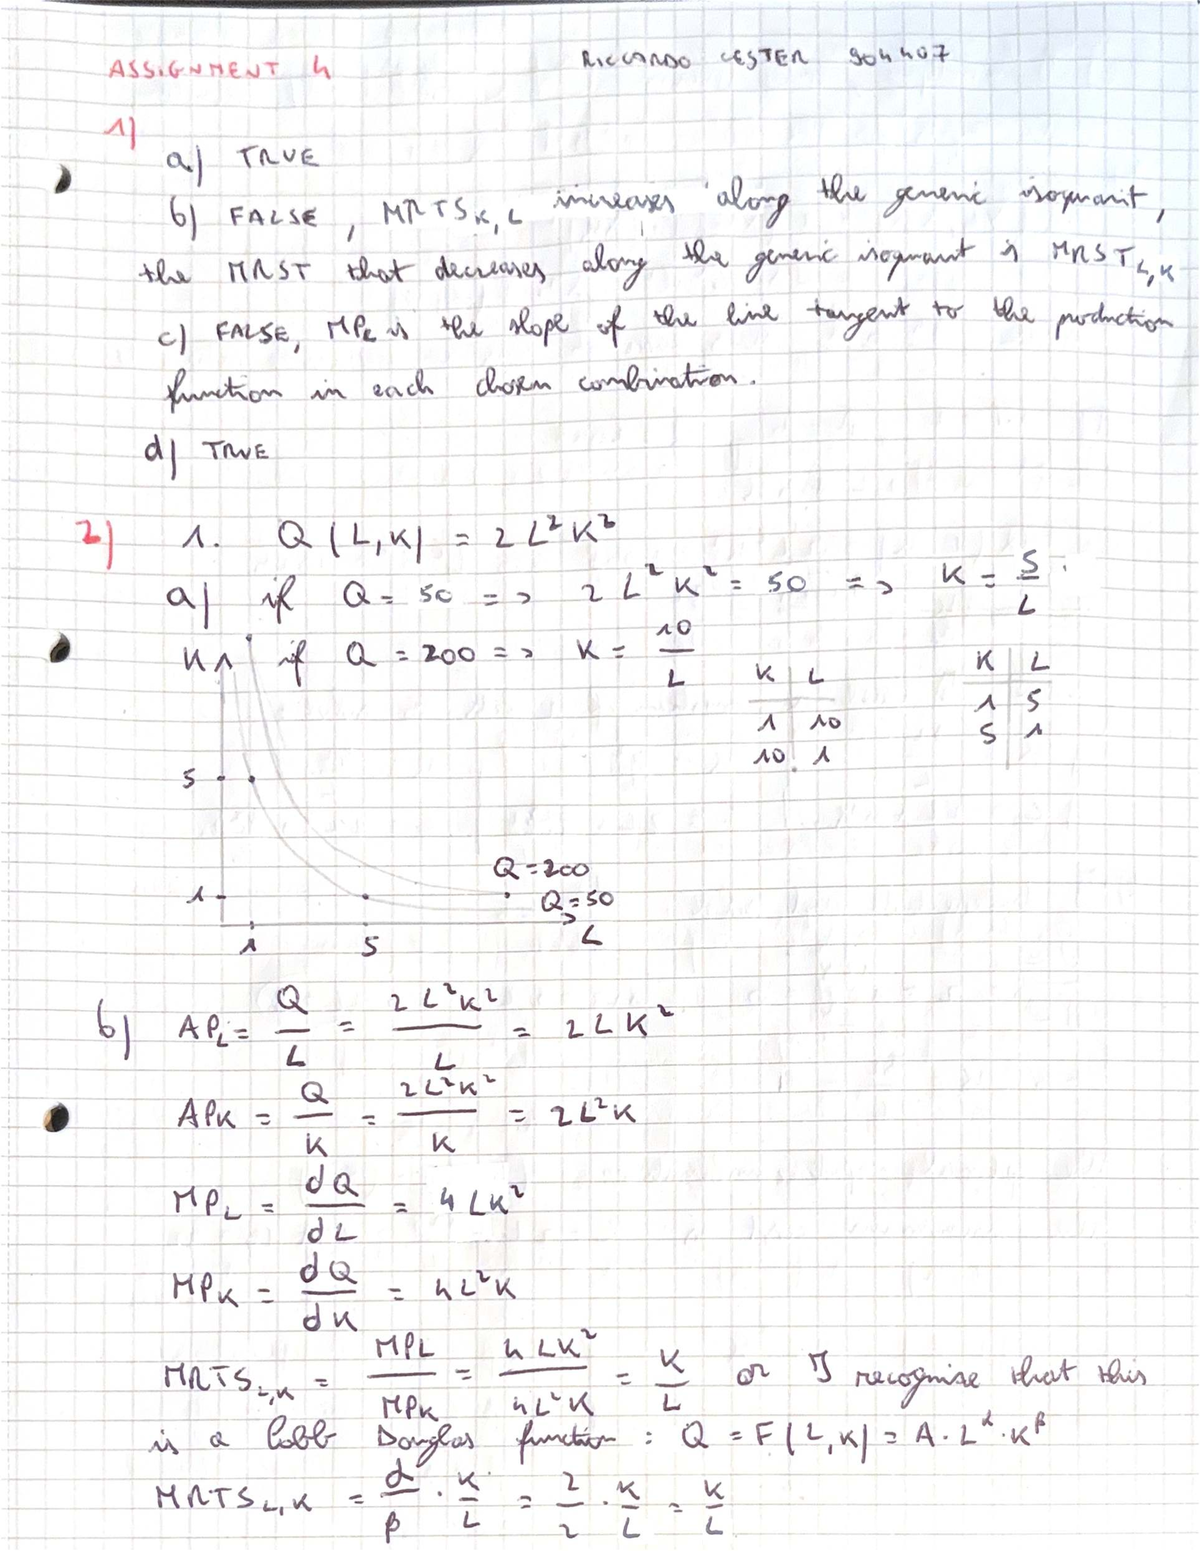 ASSIGNMENT 4 RICCARDO CESTER 904407
1)
a) TRUE
b) FALSE, MRTS K,L increases along the generic isoquant,
the MRST that decreases along the generic isoquant is MRST L,K
c) FALSE, MPL is the slope of the line tangent to the production
function in each chosen combination.
d) TRUE
2) 1. Q(L,K) = 2L²K²
a) if Q = 50 => 2L²K² = 50 => K = 5/L
K if Q = 200 => K = 10/L
K | L K | L
1 | 10 1 | 5
10 | 1 5 | 1
5
Q=200
1 Q=50
1 5 L
b) APL = Q/L = 2L²K²/L = 2LK²
APK = Q/K = 2L²K²/K = 2L²K
MPL = dQ/dL = 4LK²
MPK = dQ/dK = 4L²K
MRTS L,K = MPL/MPK = 4LK²/4L²K = K/L or I recognise that this
is a Cobb Douglas function: Q = F(L,K) = A·L^α·K^β
MRTS L,K = α/β · K/L = 2/2 · K/L = K/L